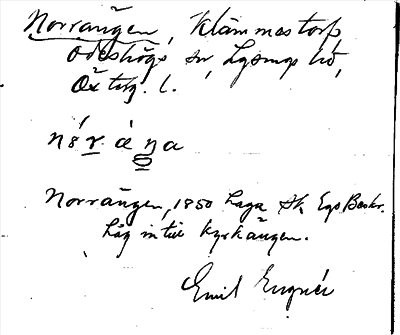 Norrängen, Klämmestorp
Ödeshögs sn, Lysings hd,
Östg. l.
Norrängen, 1850 Laga Sk Egs Beskr.
Låg intill kyrkängen.
Emil Engnér